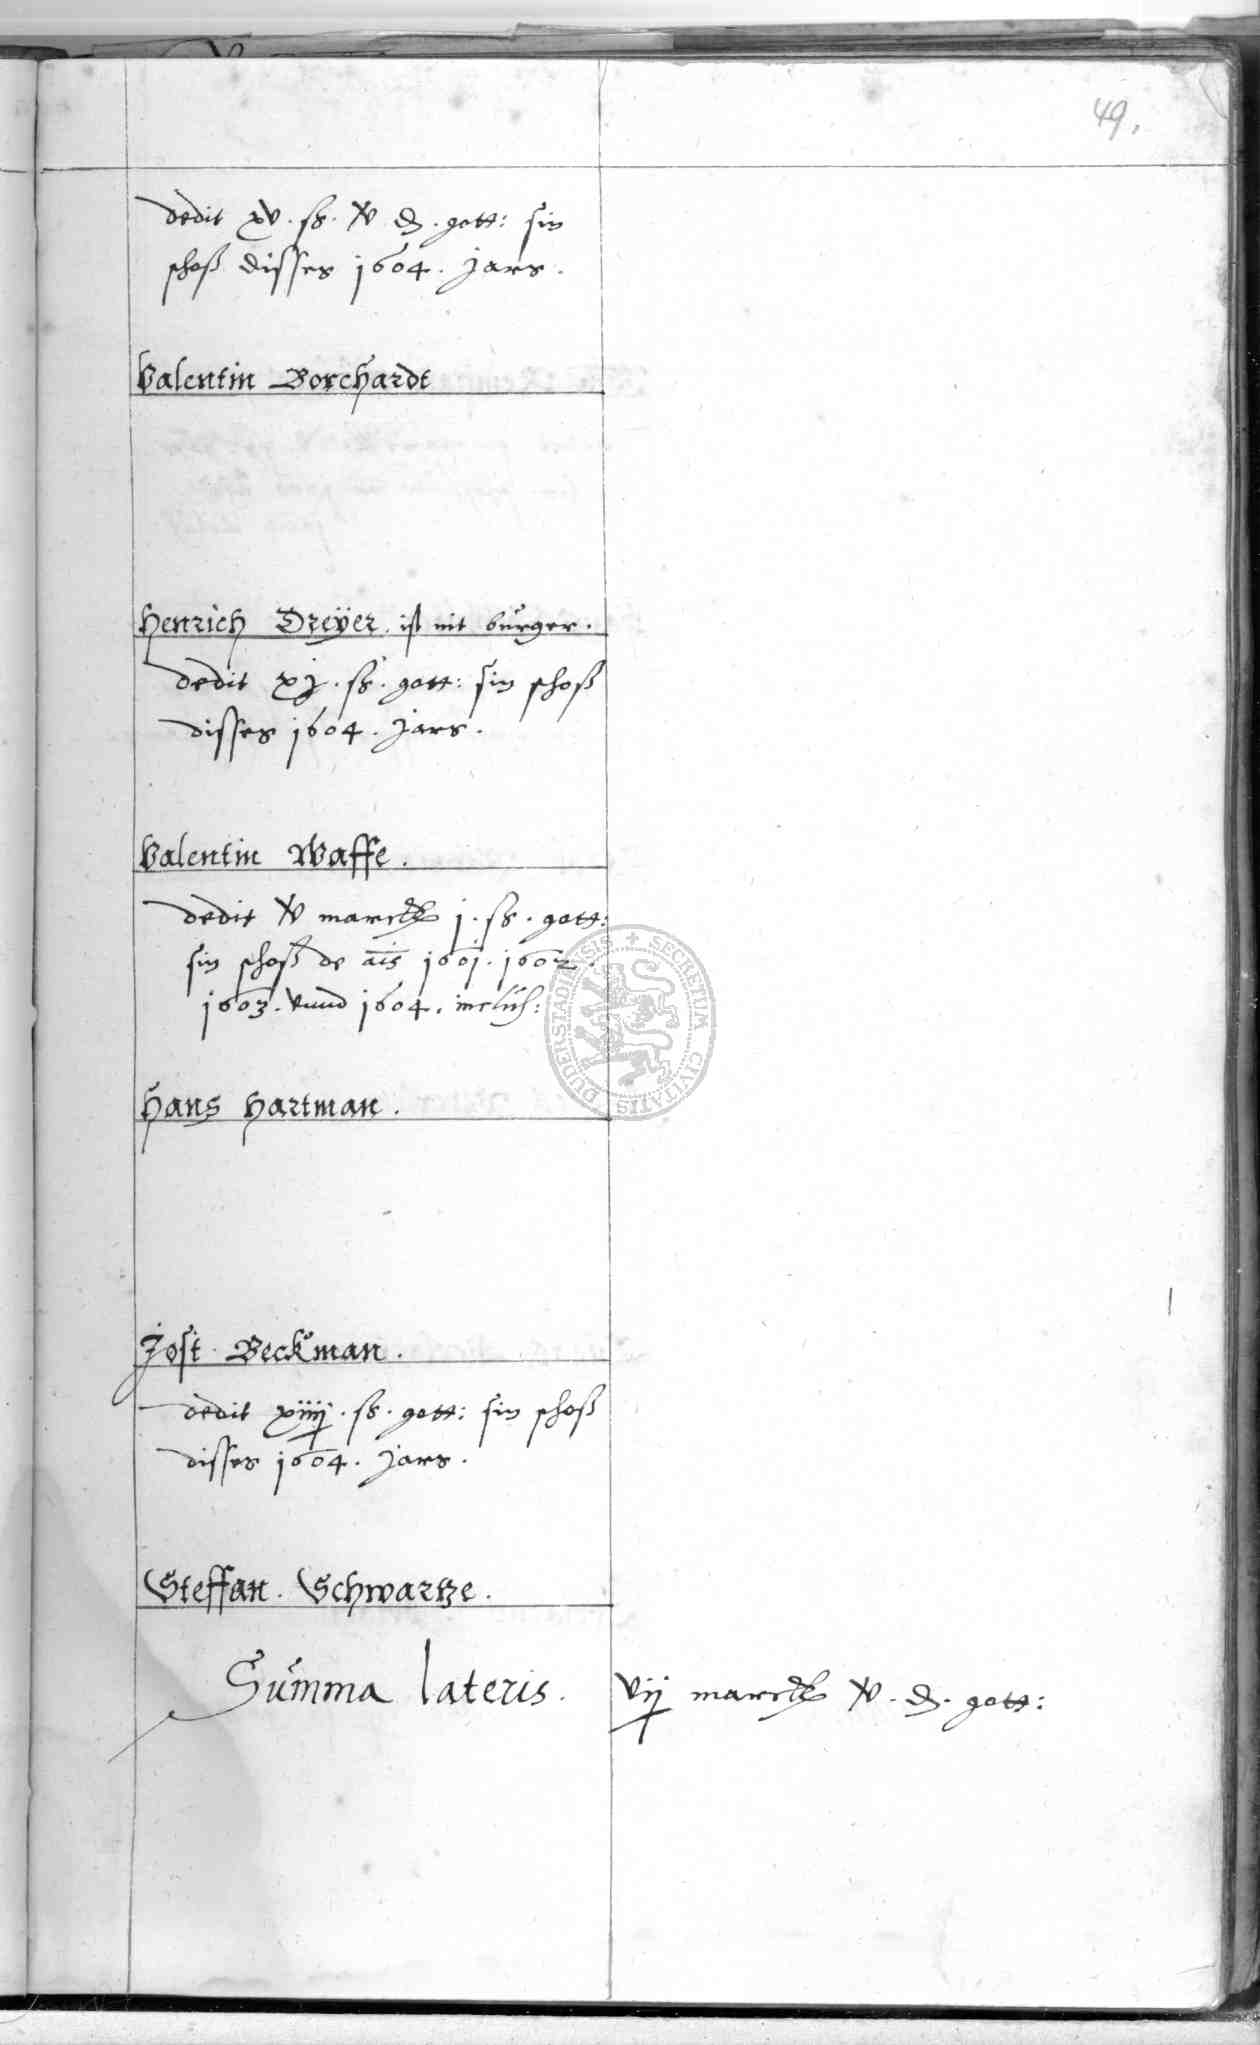 49.
dedit xv. ß. v ₰. gott: sin
schoß disses 1604. Jars.
Valentin Borchardt
Henrich Dreÿer. ist nit burger.
dedit xj. ß. gott: sin schoß
disses 1604. Jars.
Valentin Waffe.
dedit v marck j. ß. gott:
sin schoß de aīs 1601. 1602.
1603. vnnd 1604. inclus:
Hans Hartman.
Jost Beckman.
dedit xiiij. ß. gott: sin schoß
disses 1604. Jars.
Steffan. Schwartze.
Summa lateris. vij marck v. ₰. gott:
SECRETUM CIVITATIS DUDERSTADIENSIS